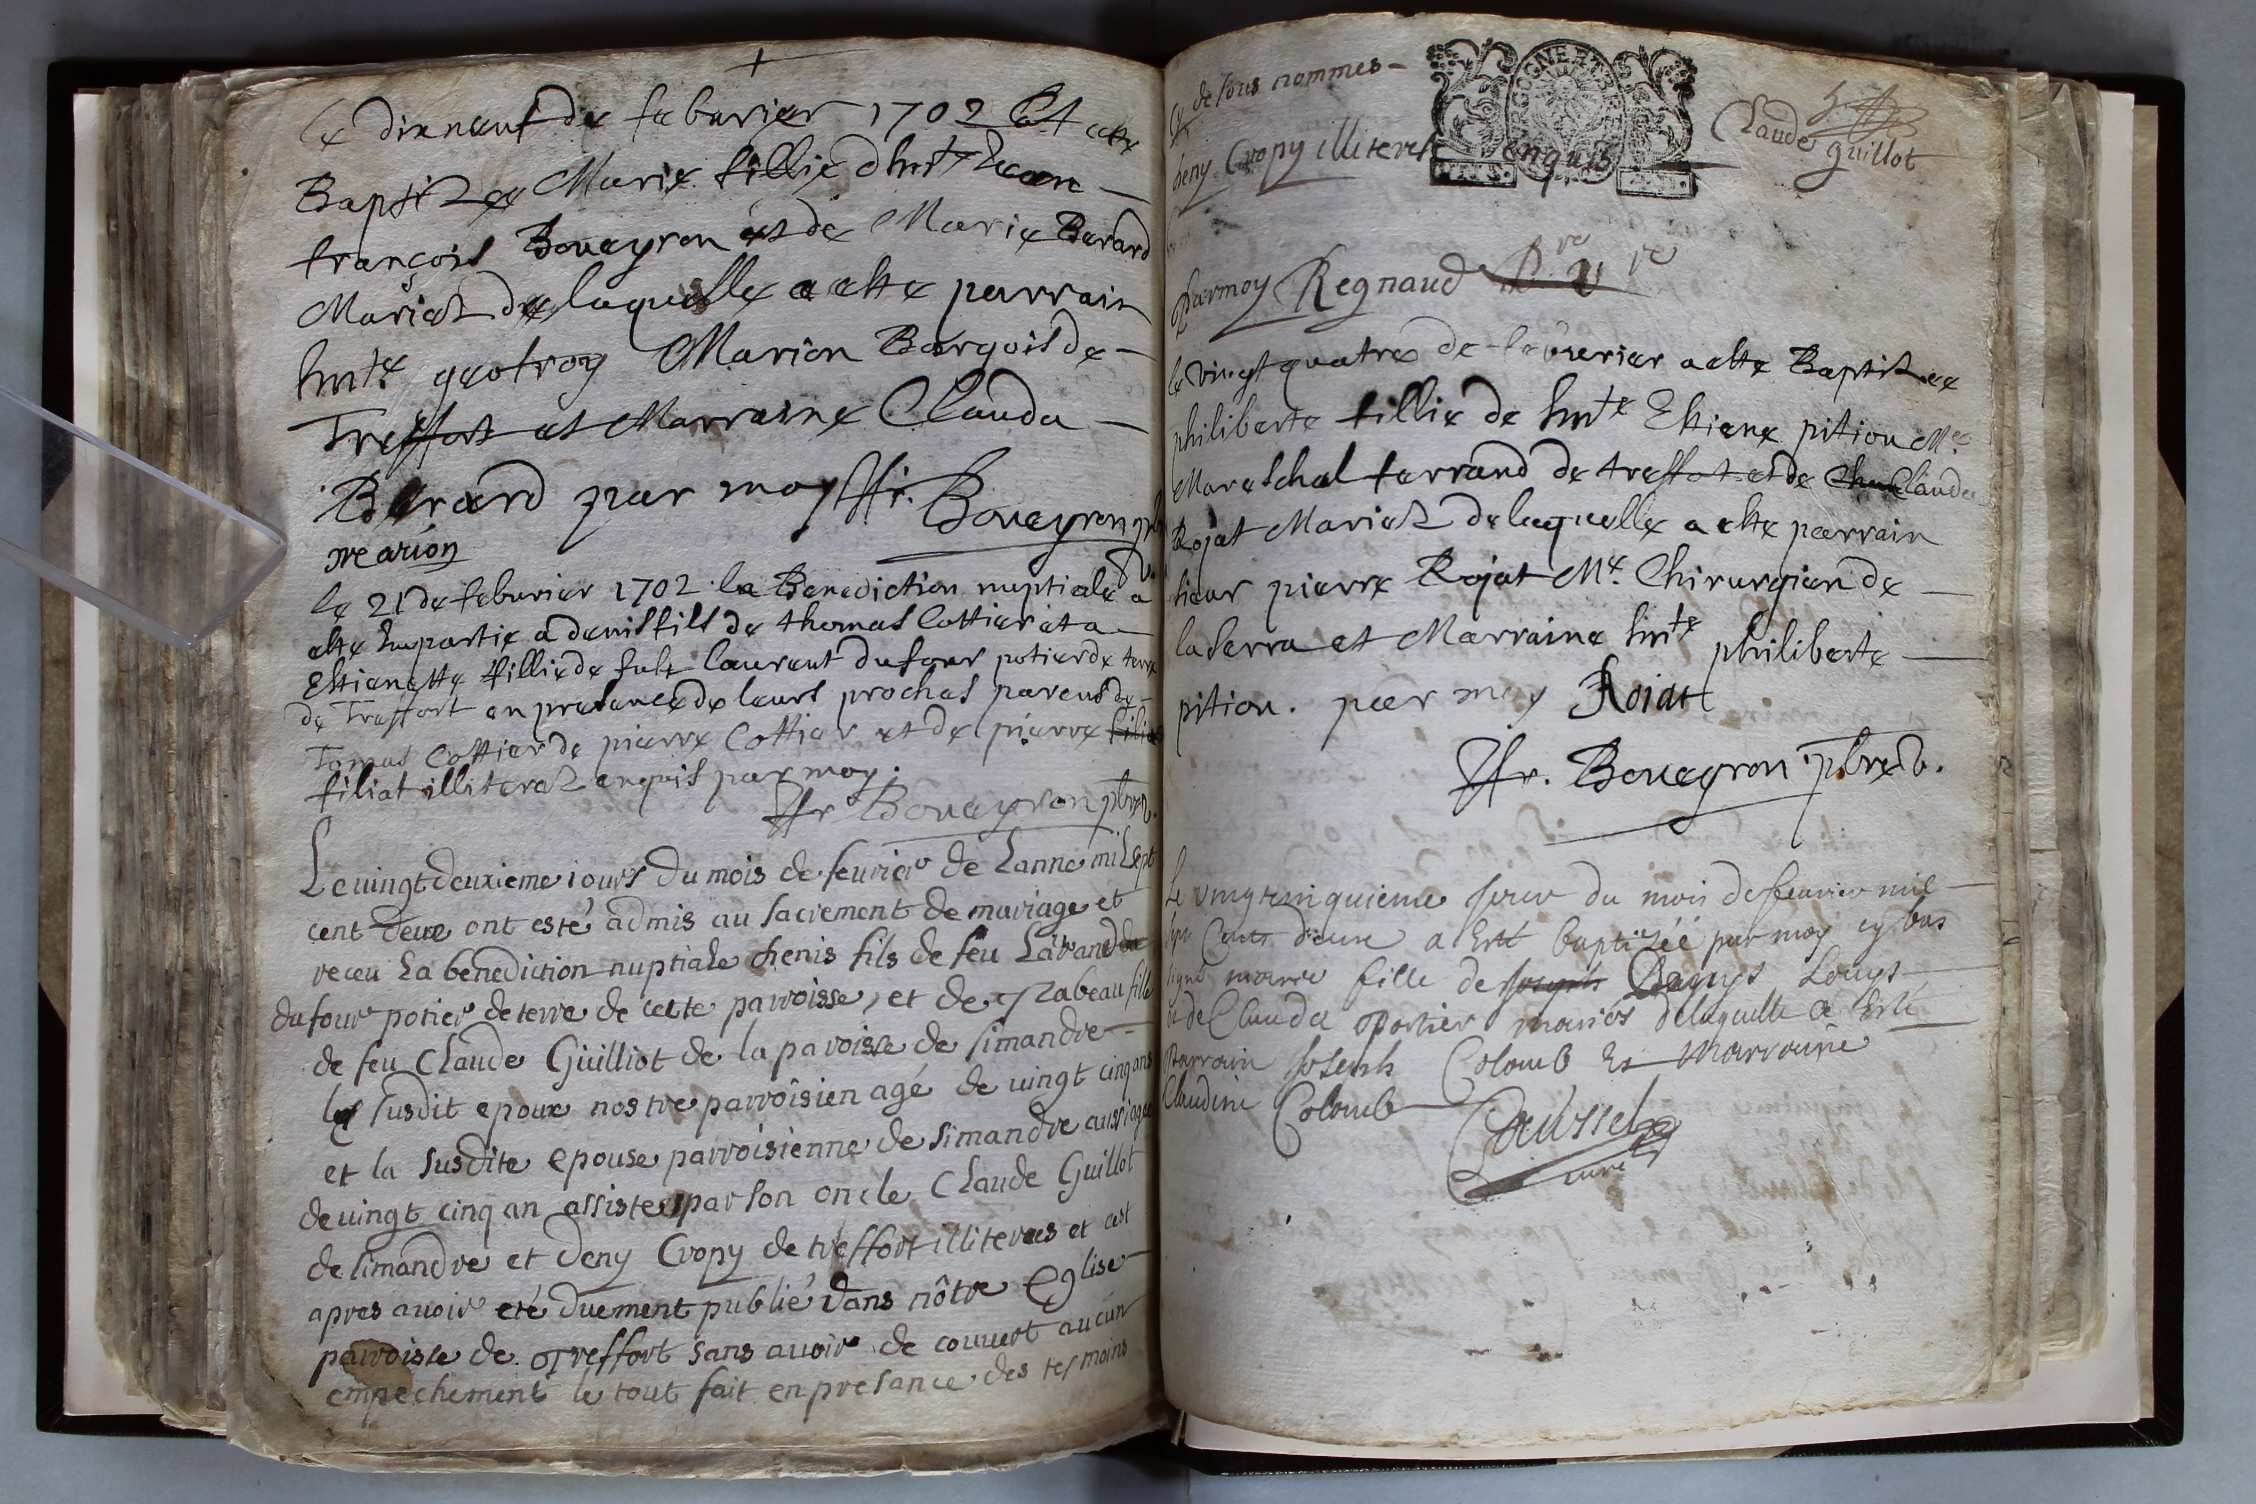 Le dixneuf de feburier 1702 Est este
Baptizee Marie fillie d'hnte Jean
françois Boueyron et de Marie Berard
Mariez de laquelle a este parrain
hnte geofroy Marion Borgois de
Treffort et Marraine Clauda
Berard par moy Ffr. Boueyron pbre
marion
le 21 de feburier 1702 la Benediction nuptiale a
este Impartie a denis fils de thomas Cottier et a
Estienette fillie de fut laurent dufour potier de terre
de Treffort en presence de leurs proches parens de
Tomas Cottier de pierre Cottier et de pierre
filiat illiterez enquis par moy.
Ffr Boueyron pbre v.
Le uingt deuxieme iours du mois de feurier de Lanne mil sept
cent deux ont esté admis au sacrement de mariage et
receu La benediction nuptiale denis fils de feu Laurand
dufour potier de terre de cette parroisse, et de yzabeau fille
de feu Claude Guilliot de la paroisse de simandre
le susdit epoux nostre parroisien agé de uingt cinq ans
et la susdite epouse parroisienne de simandre aussi agée
de uingt cinq an assistes par son oncle Claude Guillot
de simandre et deny Cropy de treffort illiterees et cest
apres auoir eté duement publié dans nôtre Eglise
parroisse de treffort sans auoir de couuert aucun
empechement le tout fait en presance des tesmoins
Cy de sous nommes
deny Cropy illiteré enquis
Claude guillot
Parmoy Regnaud
le vingt quatre de feburier a este Baptizee
philiberte fillie de hnte Estiene pition Me
Mareschal ferrand de treffort et de Claude
Rojat Mariez de laquelle a este parrain
sieur pierre Rojat Me. Chirurgien de
la Serra et Marraine hnte philiberte
pition. par moy Roiat
Ffr. Boueyron pbre v.
Le vingt cinquieme jour du mois de feurier mil
sept Cents deux a Esté baptizéé par moy cy bas
signé marie fille de Joseph Louys
et de Clauda portier mariés de laquelle a Esté
Parrain Joseph Colomb Et Marraine
Claudine Colomb
curé